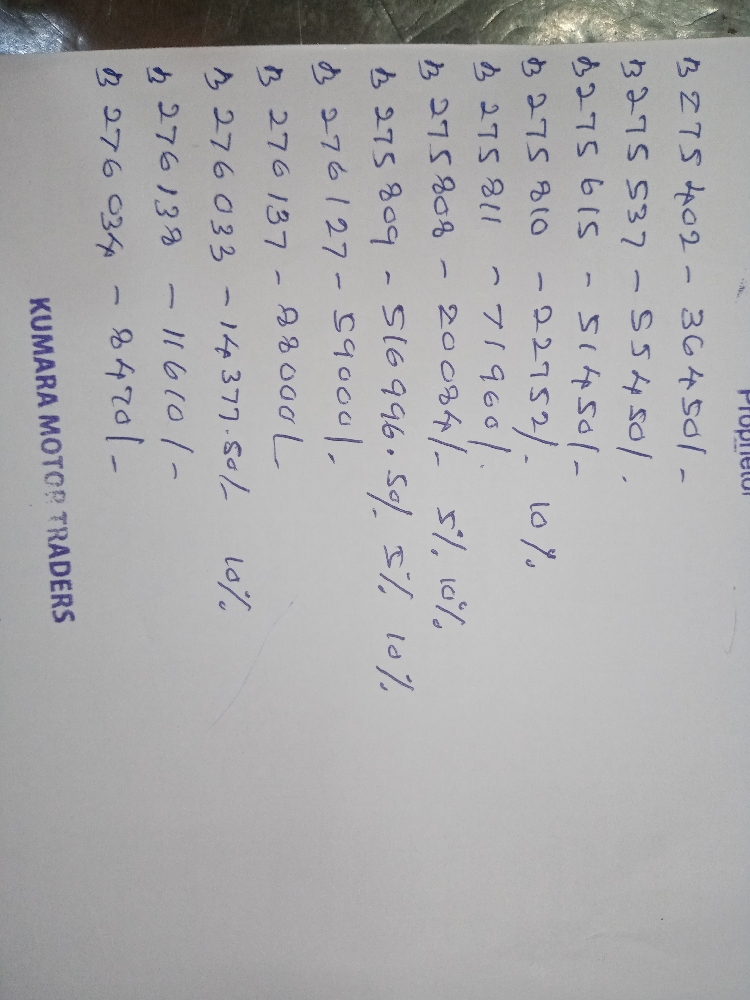 B 275402 - 36450/-
B 275537 - 55450/.
B 275615 - 51450/-
B 275810 - 22752/. 10%
B 275811 - 71960/.
B 275808 - 20084/- 5% 10%
B 275809 - 516996.50/. 5% 10%
B 276127 - 59000/.
B 276137 - 88000/-
B 276033 - 14377.50/- 10%
B 276138 - 11610/-
B 276034 - 8470/-
KUMARA MOTOR TRADERS
Proprietor